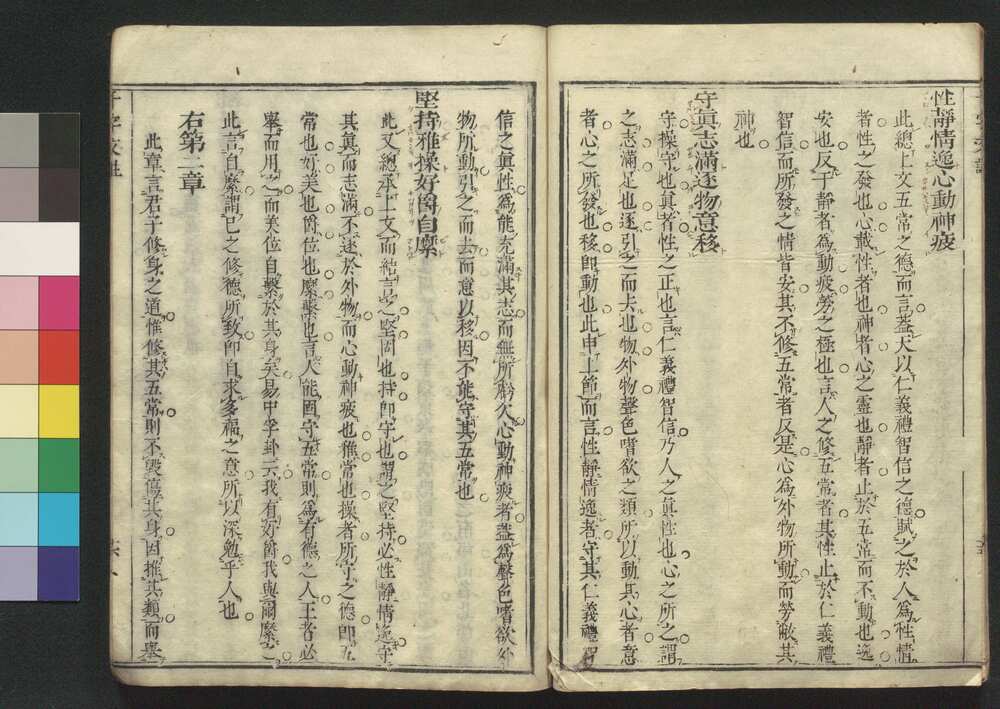 性靜情逸心動神疲
此總上文五常之德而言蓋天以仁義禮智信之德賦之於人爲性情
者性之發也心載性者也神者心之靈也靜者止於五常而不動也逸
安也反于靜者爲動疲勞之極也言人之修五常者其性止於仁義禮
智信而所發之情皆安其不修五常者反是心爲外物所動而勞敝其
神也
守眞志滿逐物意移
守操守也眞者性之正也言仁義禮智信乃人之眞性也心之所之謂
之志滿足也逐引之而去也物外物聲色嗜欲之類所以動其心者意
者心之所發也移即動也此申上節而言性靜情逸者守其仁義禮智
信之眞性爲能充滿其志而無所虧欠心動神疲者蓋爲聲色嗜欲外
物所動引之而去而意以移因不能守其五常也
堅持雅操好爵自縻
此又總承上文而結言之堅固也持即守也謂之堅持必性靜情逸守
其眞而志滿不逐於外物而心動神疲也雅常也操者所守之德即五
常也好美也爵位也縻繫也言人能固守五常則爲有德之人王者必
舉而用之而美位自繫於其身矣易中孚卦云我有好爵我與爾縻之
此言自縻謂已之修德所致即自求多福之意所以深勉乎人也
右第二章
此章言君子修身之道惟修其五常則不毀傷其身因推其類而舉